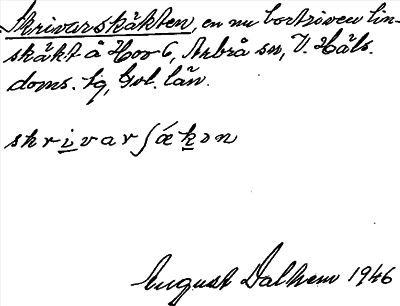 Skrivarskäkten, en nu bortriven lin-
skäkt å Hov 6, Arbrå sn, V. Häls.
doms. tg, Gvl. län.
skrivarʃækøn
August Dalhem 1946